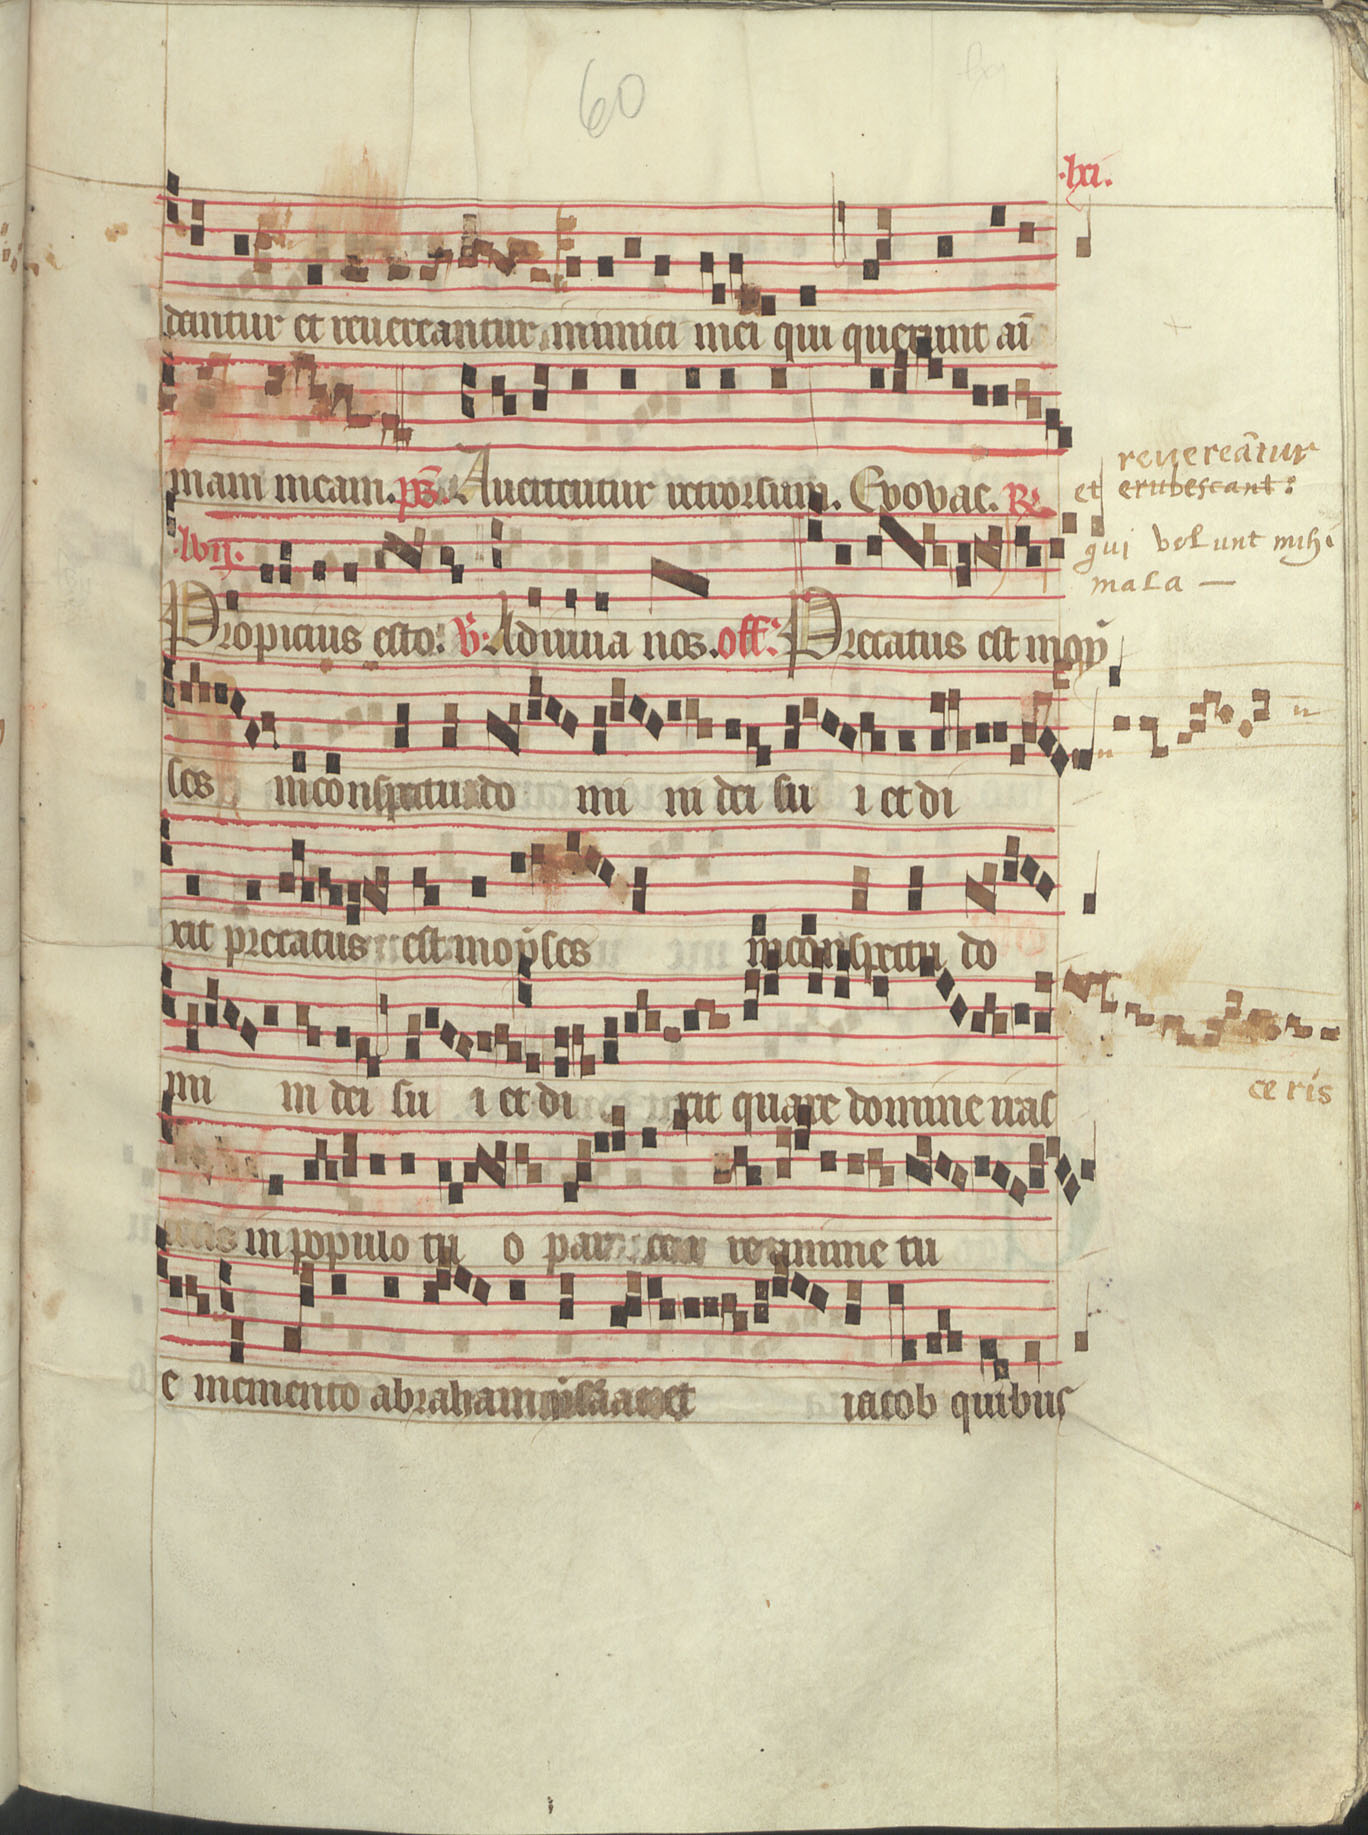 60
.lxi.
deantur et reuereantur inimici mei qui querunt ai̅
mam meam. ps̅. Auertentur retrorsum. Euouae. R̅.
reuerea̅tur
et erubescant:
qui volunt mihi
mala —
.lvii.
Propicius esto. V̅: Adiuua nos. off. Precatus est moy
ses in conspectu do mi ni dei su i et di
xit precatus est moyses in conspectu do
mi ni dei su i et di xit quare domine iras
ceris
in populo tu o par ce ire anime tu
e memento abraham et iacob quibus